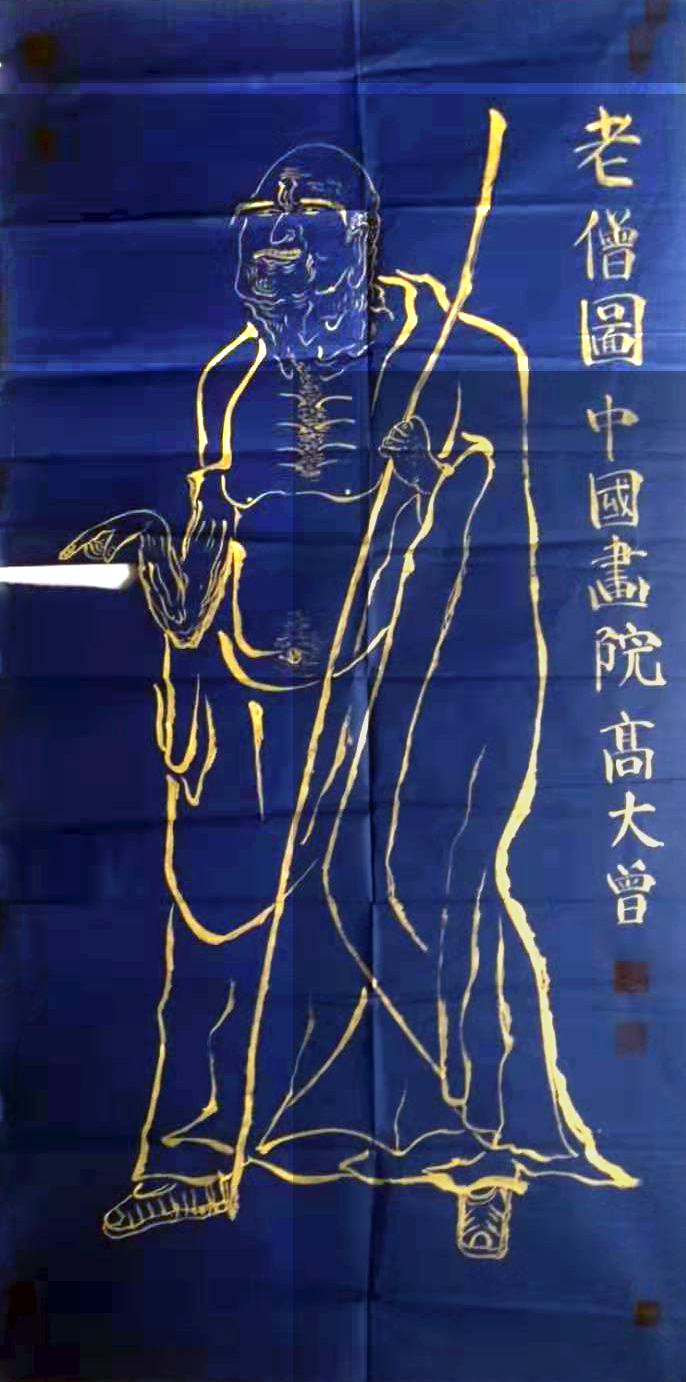 老僧圖 中國畫院 髙大曾